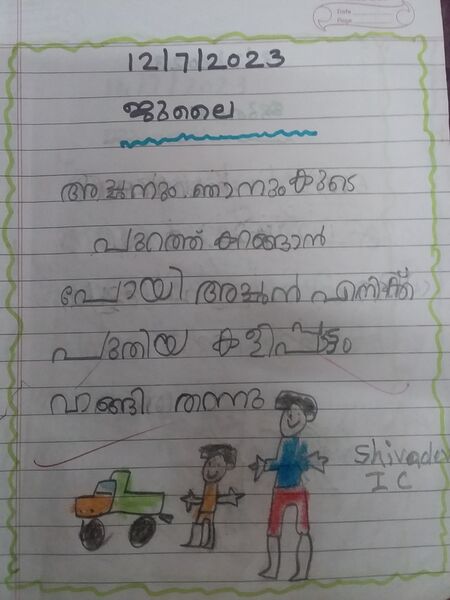 Date
Page
12/7/2023
ജുലൈ
അച്ചനും ഞാനുംകുടെ
പുറത്ത് കറങ്ങാൻ
പോയി അച്ചൻ എനിക്ക്
പുതിയ കളിപ്പട്ടം
വാങ്ങി തന്നു
I C